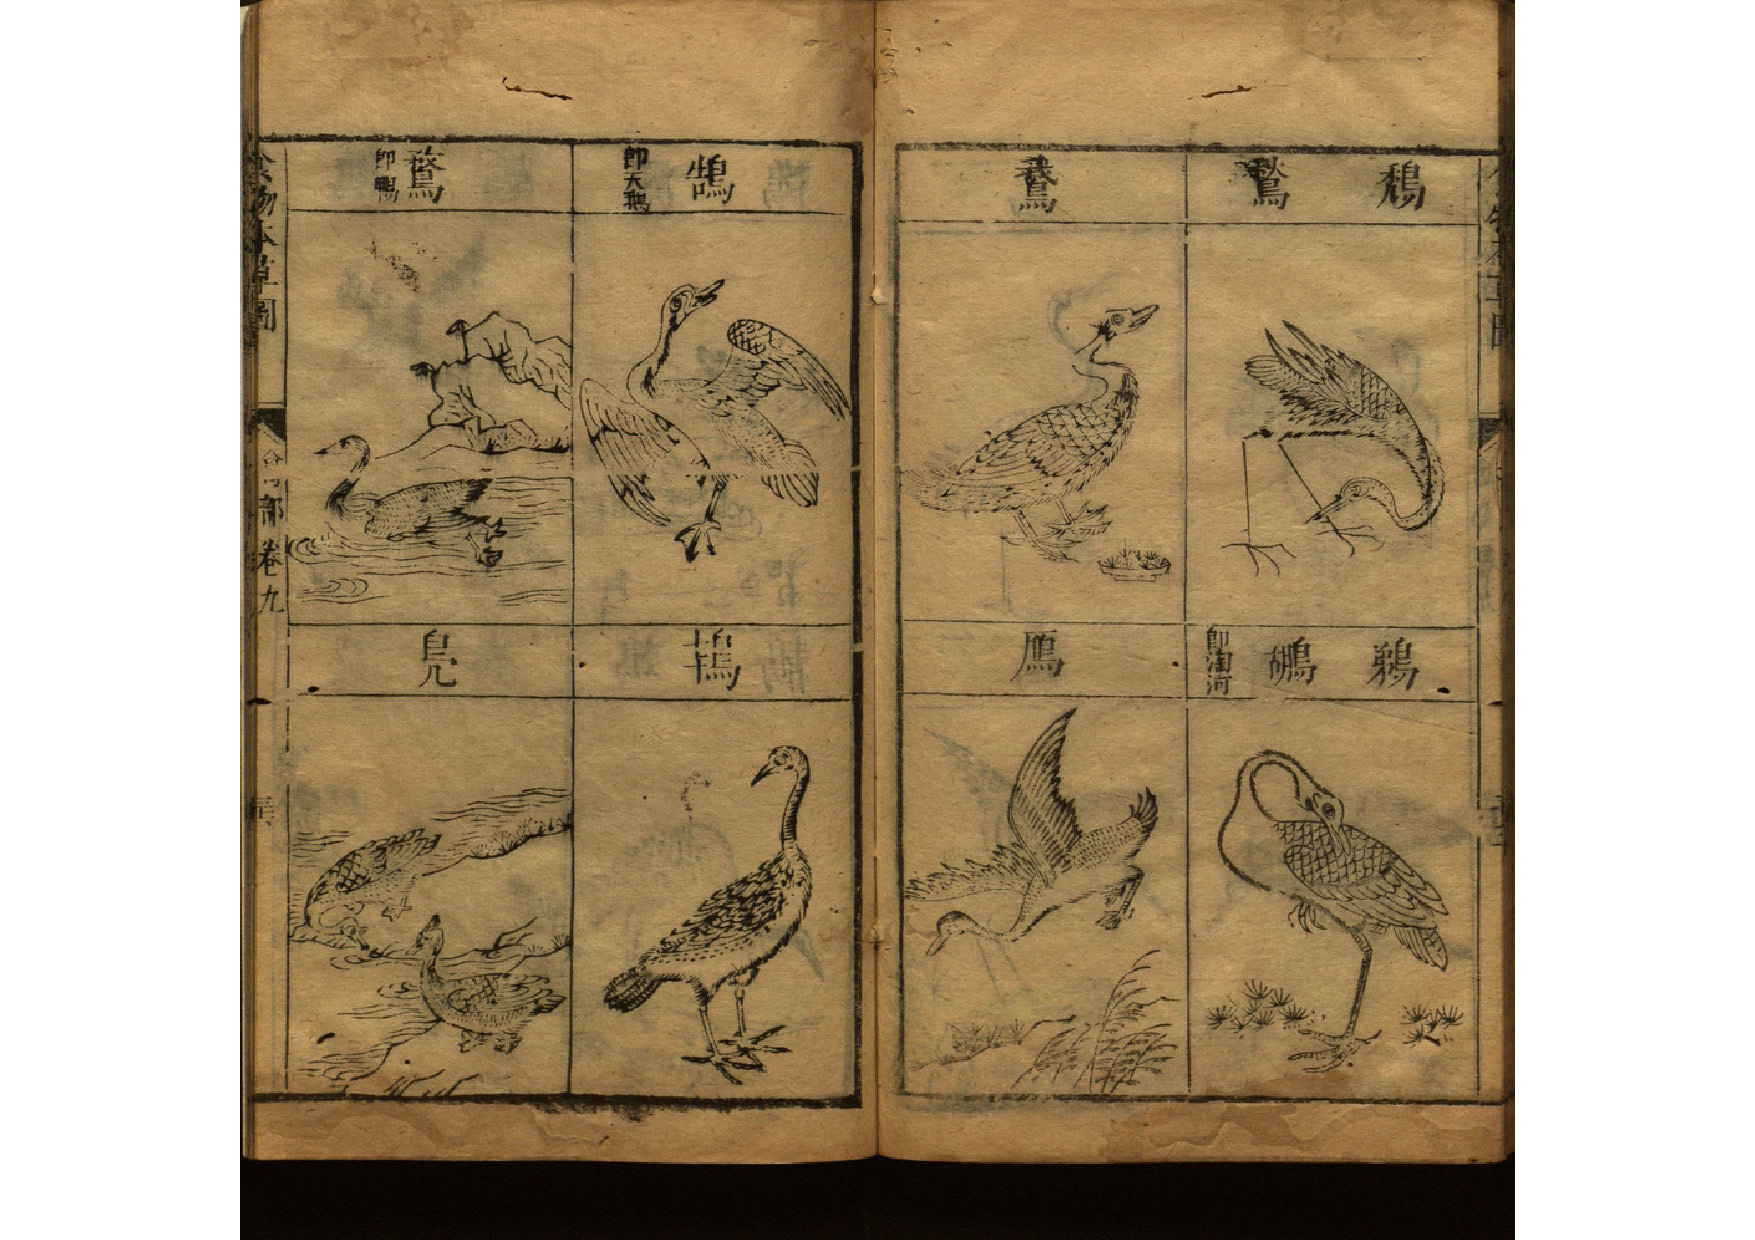 鵚鶖
鵞
鵜鶘 即淘河
鴈
鵠 即天鵝
鶩 即鴨
鴇
鳧
食物本草圖
禽部卷九